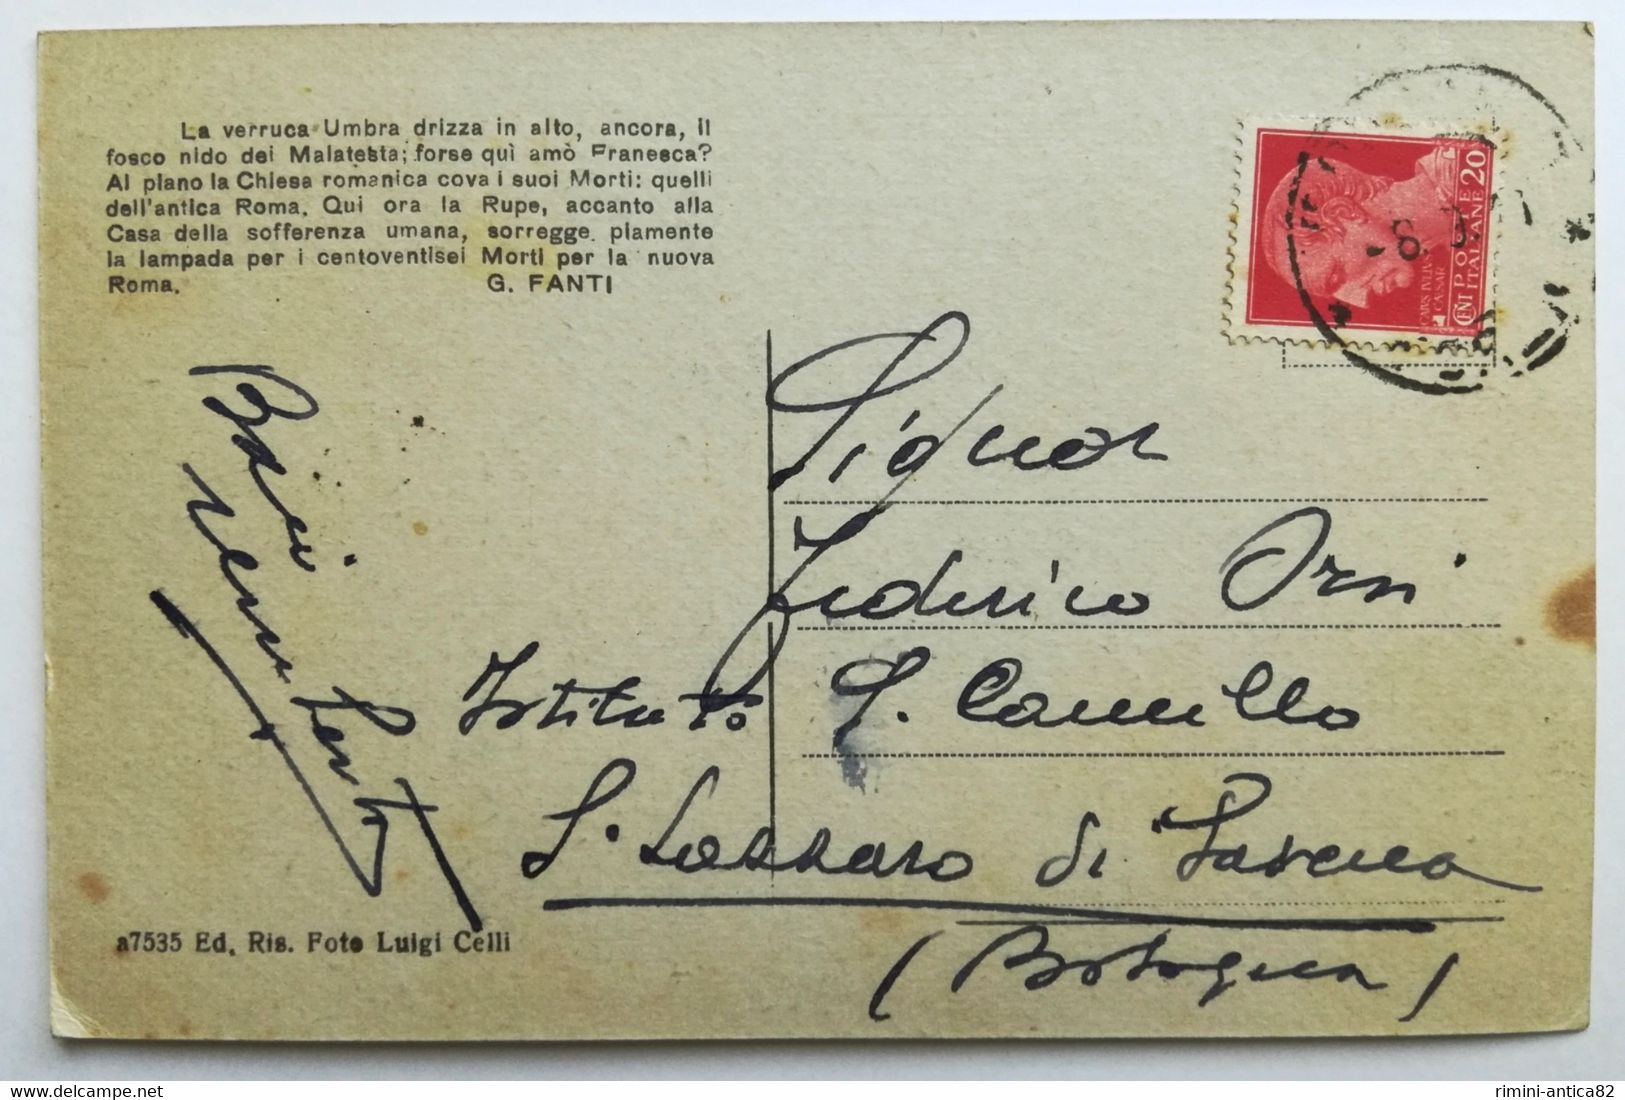 La verruca Umbra drizza in alto, ancora, il
fosco nido dei Malatesta; forse quì amò Franesca?
Al piano la Chiesa romanica cova i suoi Morti: quelli
dell'antica Roma. Qui ora la Rupe, accanto alla
Casa della sofferenza umana, sorregge piamente
la lampada per i centoventisei Morti per la nuova
Roma.
G. FANTI
CENT POSTE ITALIANE 20
CAIVS IVLIVS
CAESAR
-8.
Baci
Signor
Federico Orsi
Istituto S. Camillo
S. Lazzaro di Savena
(Bologna)
a7535 Ed. Ris. Foto Luigi Celli
delcampe.net
rimini-antica82